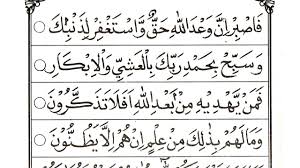 فَاصْبِرْ اِنَّ وَعْدَ اللهِ حَقٌّ وَّاسْتَغْفِرْ لِذَنْبِكَ
وَسَبِّحْ بِحَمْدِ رَبِّكَ بِالْعَشِيِّ وَالْاِبْكَارِ
فَمَنْ يَّهْدِيْهِ مِنْ بَعْدِ اللهِ اَفَلَا تَذَكَّرُوْنَ
وَمَا لَهُمْ بِذٰلِكَ مِنْ عِلْمٍ اِنْ هُمْ اِلَّا يَظُنُّوْنَ